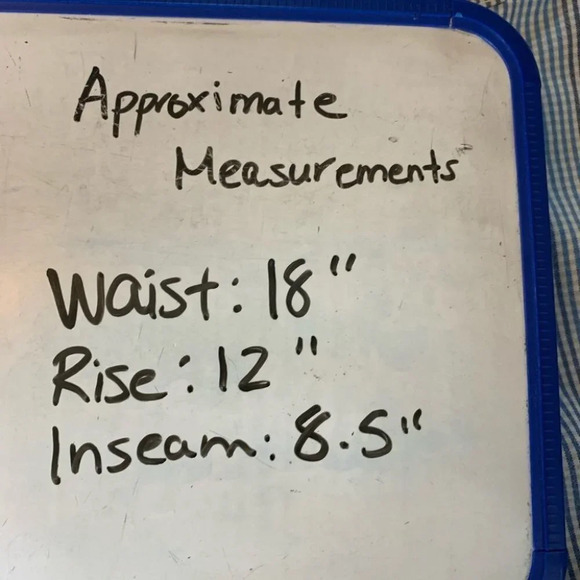 Approximate
Measurements
Waist: 18"
Rise: 12"
Inseam: 8.5"